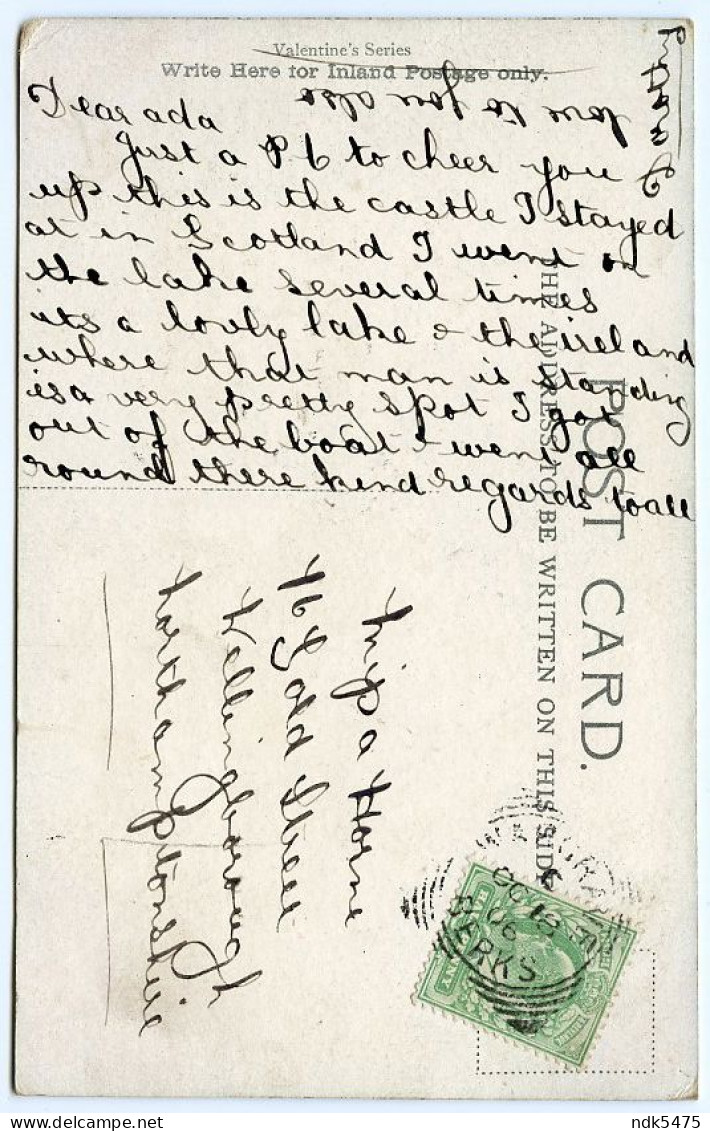 Valentine's Series
Write Here for Inland Postage only.
Dear ada
Just a P C to cheer you
up this is the castle I stayed
at in Scotland I went on
the lake several times
its a lovly lake & the ireland
where that man is standing
is a very pretty spot I got
out of the boat & went all
round there kind regards to all
POST CARD.
THE ADDRESS TO BE WRITTEN ON THIS SIDE
a Horne
Gold Street
Wellingborough
Northamptonshire
WOKINGHAM
OC 18
06
BERKS
ndk5475